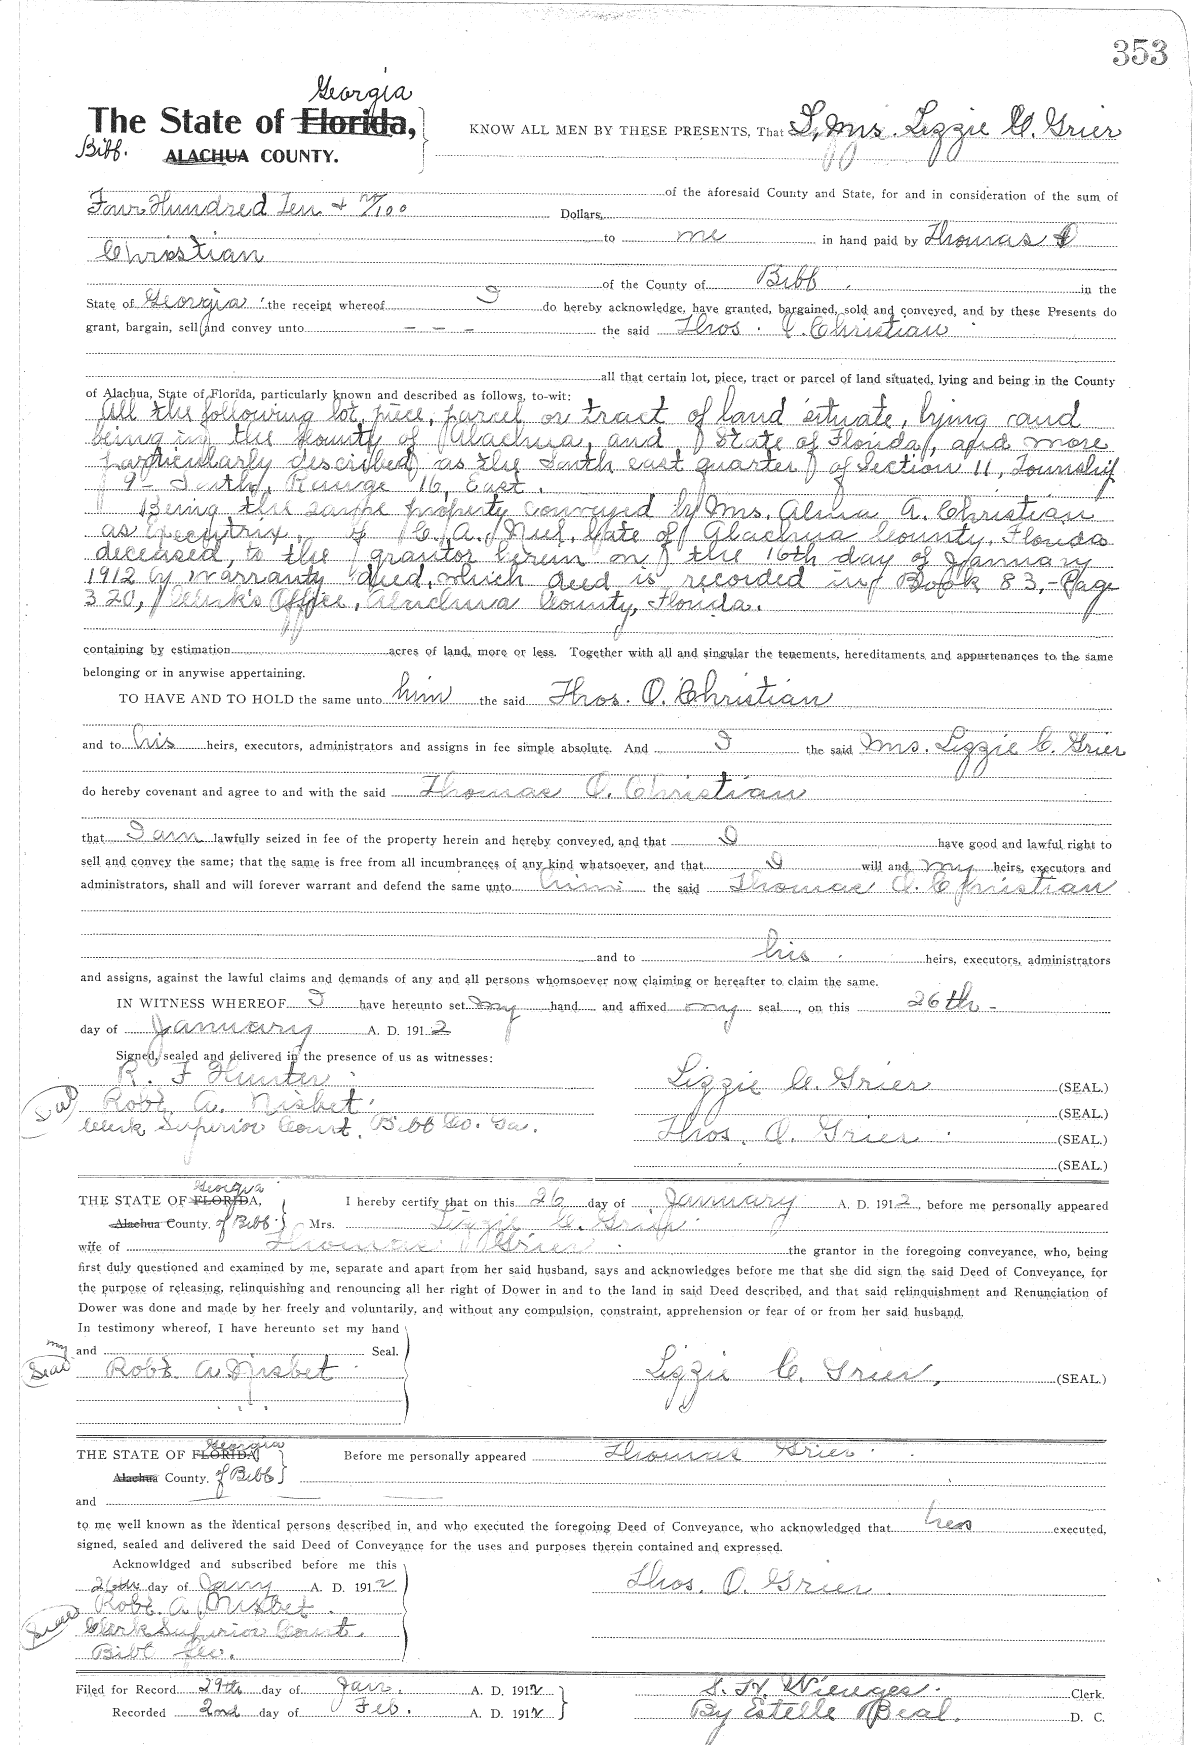 353
Georgia
The State of Florida,
KNOW ALL MEN BY THESE PRESENTS, That I, Mrs. Lizzie C. Grier
Bibb. ALACHUA COUNTY.
of the aforesaid County and State, for and in consideration of the sum of
Four Hundred Ten + no/100 Dollars,
to me in hand paid by Thomas O
Christian
of the County of Bibb. in the
State of Georgia the receipt whereof I do hereby acknowledge, have granted, bargained, sold and conveyed, and by these Presents do
grant, bargain, sell and convey unto - - - the said Thos. O. Christian
all that certain lot, piece, tract or parcel of land situated, lying and being in the County
of Alachua, State of Florida, particularly known and described as follows, to-wit:
All the following lot, piece, parcel or tract of land situate, lying and
being in the County of Alachua, and State of Florida, and more
particularly described as the South east quarter of Section 11, Township
9- South, Range 16, East.
Being the same property conveyed by Mrs. Alma A. Christian
as Executrix of C. A. late of Alachua County, Florida
deceased, to the grantor herein on the 16th day of January
1912 by warranty deed, which deed is recorded in Book 83,-Page
320, Clerk's Office, Alachua County, Florida.
containing by estimation acres of land, more or less. Together with all and singular the tenements, hereditaments and appurtenances to the same
belonging or in anywise appertaining.
TO HAVE AND TO HOLD the same unto him the said Thos. O. Christian
and to his heirs, executors, administrators and assigns in fee simple absolute. And I the said Mrs. Lizzie C. Grier
do hereby covenant and agree to and with the said Thomas O. Christian
that I am lawfully seized in fee of the property herein and hereby conveyed, and that I have good and lawful right to
sell and convey the same; that the same is free from all incumbrances of any kind whatsoever, and that I will and my heirs, executors and
administrators, shall and will forever warrant and defend the same unto him the said Thomas O. Christian
and to his heirs, executors, administrators
and assigns, against the lawful claims and demands of any and all persons whomsoever now claiming or hereafter to claim the same.
IN WITNESS WHEREOF I have hereunto set my hand and affixed my seal, on this 26th -
day of January A. D. 1912
Signed, sealed and delivered in the presence of us as witnesses:
R. F Hunter
Lizzie C. Grier (SEAL.)
Seal Robt. A. Nisbet.
(SEAL.)
Clerk Superior Court, Bibb Co. Ga.
Thos. O. Grier (SEAL.)
(SEAL.)
Georgia
THE STATE OF FLORIDA, I hereby certify that on this 26 day of January A. D. 1912, before me personally appeared
Alachua County. of Bibb Mrs. Lizzie C. Grier
wife of Thomas O Grier the grantor in the foregoing conveyance, who, being
first duly questioned and examined by me, separate and apart from her said husband, says and acknowledges before me that she did sign the said Deed of Conveyance, for
the purpose of releasing, relinquishing and renouncing all her right of Dower in and to the land in said Deed described, and that said relinquishment and Renunciation of
Dower was done and made by her freely and voluntarily, and without any compulsion, constraint, apprehension or fear of or from her said husband.
In testimony whereof, I have hereunto set my hand
my
and Seal.
Seal Robt. A. Nisbet
Lizzie C. Grier, (SEAL.)
Georgia
THE STATE OF FLORIDA Before me personally appeared Thomas Grier
Alachua County. of Bibb
and
to me well known as the identical persons described in, and who executed the foregoing Deed of Conveyance, who acknowledged that executed,
signed, sealed and delivered the said Deed of Conveyance for the uses and purposes therein contained and expressed.
Acknowldged and subscribed before me this
26th day of Jany A. D. 1912
Thos. O. Grier
Robt. A. Nisbet
Seal Clerk Superior Court.
Bibb Co.
Filed for Record 29th day of Jan. A. D. 1912
S. H. Wienges. Clerk.
Recorded 2nd day of Feb. A. D. 1912
By Estelle Beal. D. C.